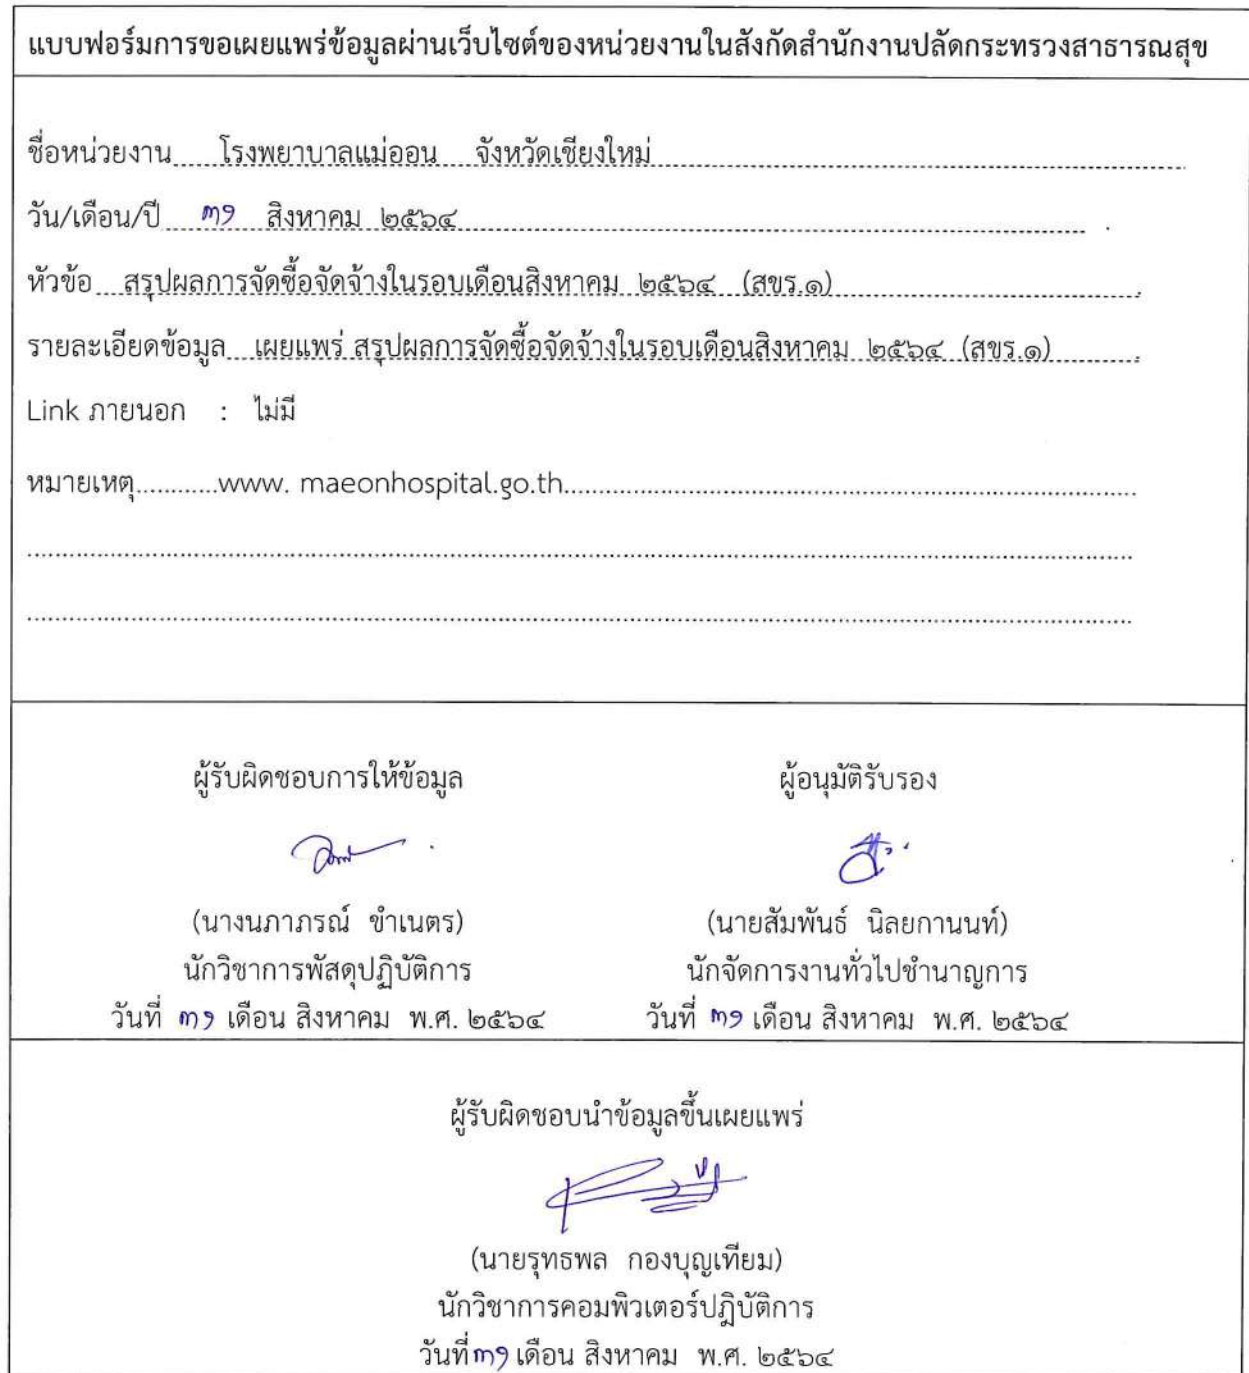 แบบฟอร์มการขอเผยแพร่ข้อมูลผ่านเว็บไซต์ของหน่วยงานในสังกัดสำนักงานปลัดกระทรวงสาธารณสุข
ชื่อหน่วยงาน โรงพยาบาลแม่ออน จังหวัดเชียงใหม่
วัน/เดือน/ปี ๓๑ สิงหาคม ๒๕๖๔
หัวข้อ สรุปผลการจัดซื้อจัดจ้างในรอบเดือนสิงหาคม ๒๕๖๔ (สขร.๑)
รายละเอียดข้อมูล เผยแพร่ สรุปผลการจัดซื้อจัดจ้างในรอบเดือนสิงหาคม ๒๕๖๔ (สขร.๑)
Link ภายนอก : ไม่มี
หมายเหตุ............www. maeonhospital.go.th
ผู้รับผิดชอบการให้ข้อมูล ผู้อนุมัติรับรอง
(นางนภาภรณ์ ขำเนตร) (นายสัมพันธ์ นิลยกานนท์)
นักวิชาการพัสดุปฏิบัติการ นักจัดการงานทั่วไปชำนาญการ
วันที่ ๓๑ เดือน สิงหาคม พ.ศ. ๒๕๖๔ วันที่ ๓๑ เดือน สิงหาคม พ.ศ. ๒๕๖๔
ผู้รับผิดชอบนำข้อมูลขึ้นเผยแพร่
(นายรุทธพล กองบุญเทียม)
นักวิชาการคอมพิวเตอร์ปฏิบัติการ
วันที่ ๓๑ เดือน สิงหาคม พ.ศ. ๒๕๖๔